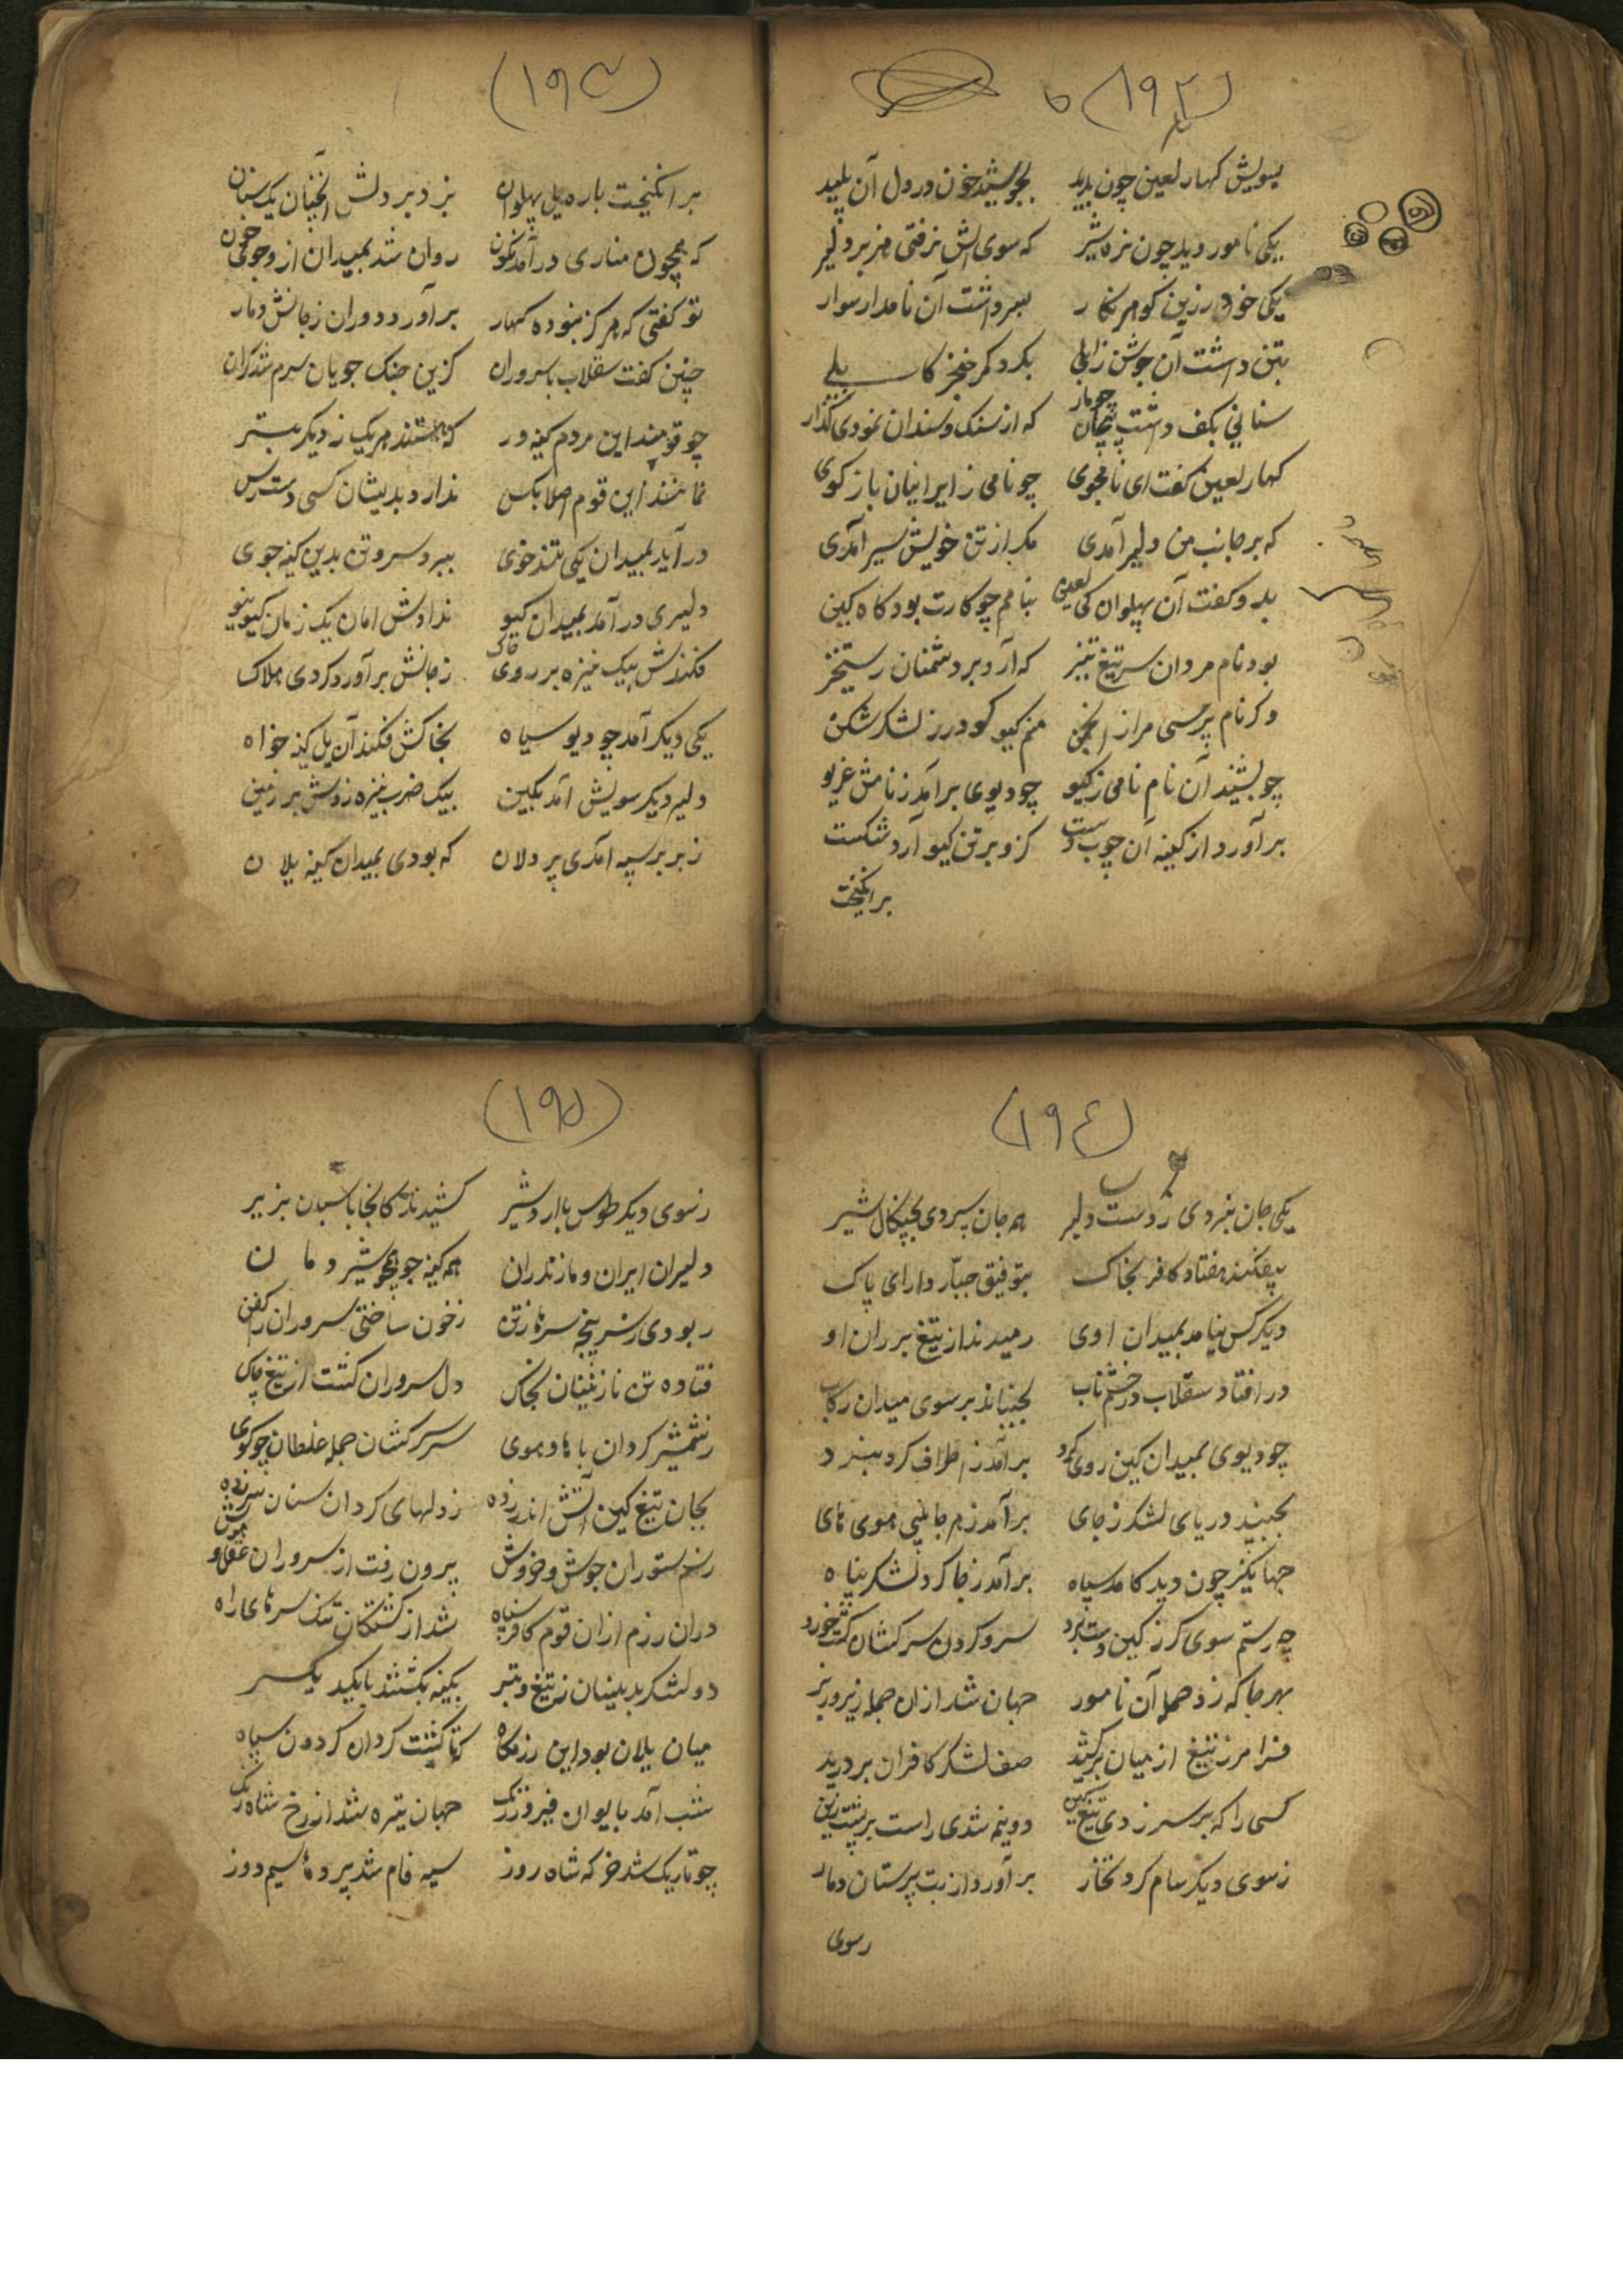 (۱۹۲)
بسویش کهار لعین چون بدید بجوشید خون در دل آن پلید
یکی نامور دید چون نره شیر که سوی اش نرفتی هزبر دلیر
یکی خود زرین کوهر نکار بسر داشت آن نامدار سوار
بتن داشت آن جوشن زابلی بکرد کمر خنجر کابلے
سنانی بکف داشت پیچان چومار که از سنک و سندان نمودی کذار
کهار لعین کفت ای نامجوی چو نامی ز ایرانیان باز کوی
که بر جانب من دلیر آمدی مکر از تن خویش سیر آمدی
بدو کفت آن پهلوان کی لعین بنامم چو کارت بود کاه کین
بود نام مردان سر تیغ تیز که آرد بر دشمنان رستخیز
وکر نام پرسی مرا ز انجمن منم کیو کودرز لشکر شکن
چو بشنید آن نام نامی ز کیو چو دیوی بر آمد ز نامش غریو
بر آورد از کینه آن چوب دست کزو بر تن کیو آرد شکست
برانکیخت
(۱۹۳)
برانکیخت باره یل پهلوان بزد بر دلش آنچنان یک سنان
که همچون مناری در آمد نکون روان شد بمیدان ازو جوی خون
تو کفتی که هرکز نبوده کهار بر آورد دوران ز جانش دمار
چنین کفت سقلاب با سروران کزین جنک جویان سرم شد کران
چو قومند این مردم کینه ور که هستند هریک ز دیکر بتر
نمانند این قوم اصلا بکس ندارد بدیشان کسی دسترس
در آید بمیدان یکی تند خوی ببرد سر و تن بدین کینه جوی
دلیری در آمد بمیدان کیو ندادش امان یک زمان کیو نیو
فکندش بیک نیزه بر روی خاک ز جانش بر آورد کردی هلاک
یکی دیکر آمد چو دیو سیاه بخاکش فکند آن یل کینه خواه
دلیر دیکر سویش آمد بکین بیک ضرب نیزه زدش بر زمین
ز بربر سپه آمدی پر دلان که بودی بمیدان کین یلان
(۱۹۴)
یکی جان نبردی ز دست دلیر همه جان سپردی بچنکال شیر
بیفکند هفتاد کافر بخاک بتوفیق جبّار دارای پاک
دیکر کس نیامد بمیدان اوی رمیدند از تیغ بران او
در افتاد سقلاب در خشم ناب بجنباند بر سوی میدان رکاب
چو دیوی بمیدان کین روی کرد بر آمد ز اطراف کرد نبرد
بجنبید دریای لشکر ز جای بر آمد ز هر جانبی هوی های
جهانکیر چون دید کامد سپاه بر آمد ز جا کرد لشکر پناه
چه رستم سوی کرز کین دست برد سر و کردن سرکشان کشت خورد
بهر جا که زد حمله آن نامور جهان شد از ان جمله زیر و زبر
فرامرز تیغ از میان برکشید صف لشکر کافران بر درید
کسی را که بر سر زدی تیغ کین دو نیم شدی راست بر پشت زین
ز سوی دیکر سام کرد نخار بر آورد از بت پرستان دمار
زسوی
(۱۹۵)
ز سوی دیکر طوس با اردشیر کشیدند کانجا باسبان بزیر
دلیران ایران و مازندران همه کینه جو همچو شیر دمان
ربودی ز سر پنجه سرها ز تن ز خون ساختی سروران را کفن
فتاده تن نازنینان بخاک دل سروران کشت از تیغ چاک
ز شمشیر کردان با های و هوی سر سرکشان جمله غلطان چو کوی
بجان تیغ کین آتش اندر زده ز دلهای کردان سنان سر زده
ز سم ستوران جوش و خروش برون رفت از سروران عقل و هوش
دران رزم از ان قوم کافر سپاه شد از کشتکان تنک سرهای راه
دو لشکر بدینسان ز تیغ و تبر بکینه بکشتند با یکدیکر
میان یلان بود این رزمکاه که تا کشت کردان کردون سیاه
شب آمد بایوان فیروزه رنک جهان تیره شد از رخ شاه زنک
چو تاریک شد خرکه شاه روز سیه فام شد پرده سیم دوز